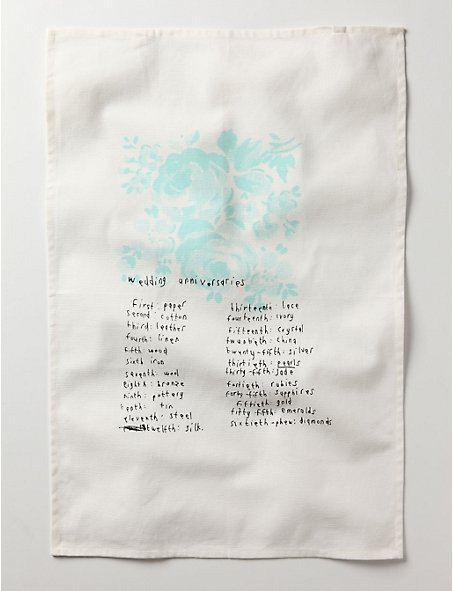 wedding anniversaries
first: paper
second: cotton
third: leather
fourth: linen
fifth: wood
sixth iron
seventh: wool
eighth: bronze
ninth: pottery
tenth: tin
eleventh: steel
twelfth: silk.
thirteenth: lace
fourteenth: ivory
fifteenth: crystal
twentieth: china
twenty-fifth: silver
thirtieth: pearls
thirty-fifth: jade
fortieth: rubies
forty-fifth: sapphires
fiftieth: gold
fifty-fifth: emeralds
sixtieth-phew: diamonds